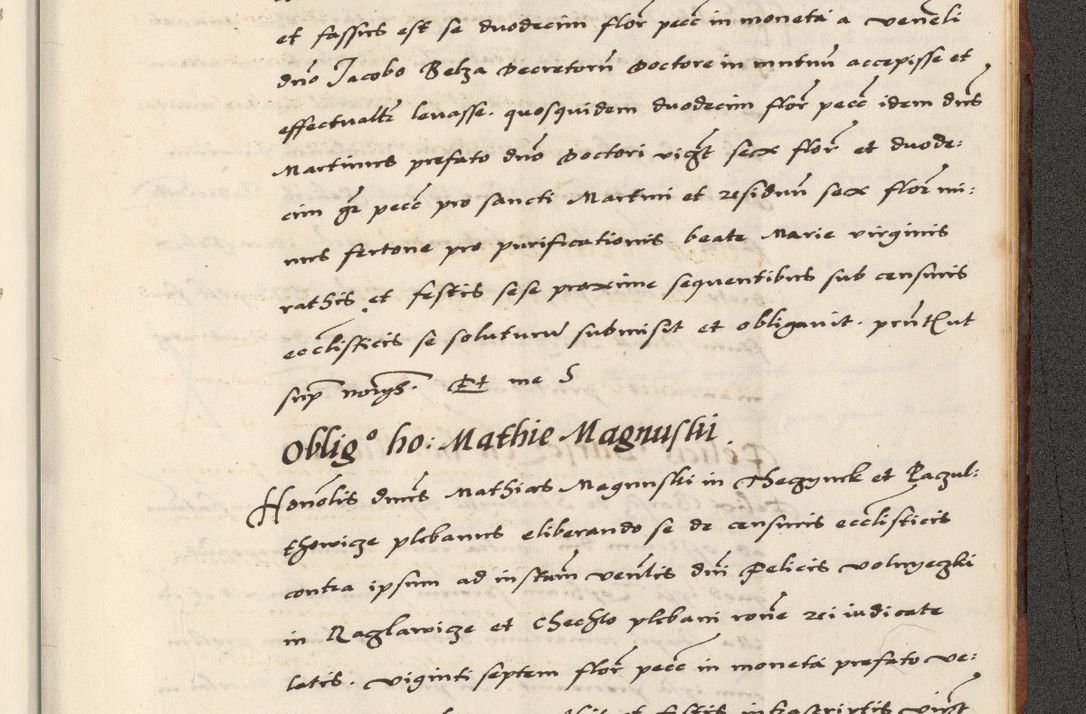 et fassus est se duodecim flor̄ pecc̄ in moneta a veneli
dn̄o Jacobo Belza Decretorū Doctore in mutuū accepisse et
effectualtr̄ levasse. quosquidem duodecim flor̄ pecc̄ idem dn̄s
Martinus prefato dn̄o Doctori sex flor̄ et duode:
cim gr̄ pecc̄ pro sancti Martini et residuū sex flor̄ mi:
nus fertone pro purificationis beate Marie virginis
rathis et festis sese proxime sequentibus sub censuris
ecclīsticis se soluturū submisit et obligavit. prn̄t ut
sup̄ Et me
Oblig⁰ ho: Mathie Magnuski.
Honōlis dnūs Mathias Magnuski in et Raczul:
thowicze plebanus eliberando se de censuris ecclīsticis
contra ipsum ad instam̄ ven̄lis dn̄i Felicis Volnyeczki
in Raczlawicze et Chechlo plebani ron̄e rei iudicate
latis. viginti septem flor̄ pecc̄ in moneta prefato ve:
et festis infrascriptis